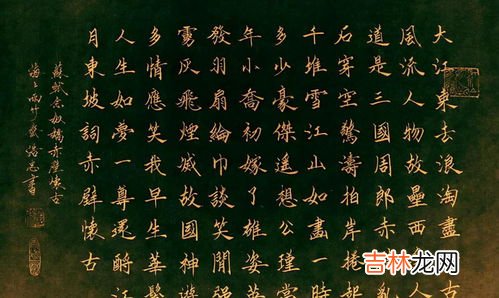 大江東去浪淘盡千古
風流人物故壘西邊人
道是三國周郎赤壁亂
石穿空驚濤拍岸捲起
千堆雪江山如畫一時
多少豪傑遙想公瑾當
年小喬初嫁了雄姿英
發羽扇綸巾談笑間強
虜灰飛煙滅故國神遊
多情應笑我早生華髮
人生如夢一尊還酹江
月東坡詞赤壁懷古
蘇軾念奴嬌赤壁懷古
書
吉林龙网